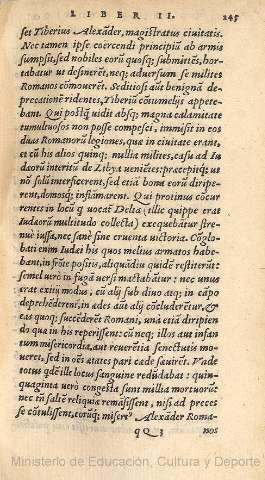 LIBER II. 245
set Tiberius Alexāder, magistratus ciuitatis.
Nec tamen ipse coercendi principiū ab armis
sumpsit, sed nobiles eorū quosq; submittēs, hor-
tabatur ut desinerēt, neq; aduersum se milites
Romanos cōmouerēt. Seditiosi aūt benignā de-
precationē ridentes, Tiberiū cōtumelijs appete-
bant. Qui postq̄ uidit absq; magna calamitate
tumultuosos non posse compesci, immisit in eos
duas Romanorū legiones, quæ in ciuitate erant,
et cū his alios quinq; millia milites, casu ad Iu
dæorū interitū de Libya ueniētes: præcepitq; ut
nō solū interficerent, sed etiā bona eorū diripe-
rent, domosq; inflāmarent. Qui protinus cōcur
rentes in locū q̄ uocat̄ Delta (illic quippe erat
Iudæorū multitudo collecta) exequebātur stre-
nuè iussa, nec sanè sine cruenta uictoria. Cōglo-
bati enim Iudæi his quos melius armatos habe-
bant, in frōte positis, aliquādiu quidē restiterūt:
semel uerò in fugā uersi mactabātur: nec unus
erat exitij modus, cū alij sub diuo atq; in cāpo
deprehēderent̄, in ædes aūt alij cōcluderētur, &
eas quoq; succēderēt Romani, unà etiā diripien-
do quæ in his reperissent: cū neq; illos aut infan
tum misericordia, aut reuerētia senectutis mo-
ueret, sed in oēs ætates pari cæde sæuirēt. Vnde
totus q̄dē ille locus sanguine redūdabat: quin-
quaginta uerò congesta sunt millia mortuorū:
nec in salutē reliquiæ remāsissent, nisi ad preces
se cōtulissent, eorūq; misert9 Alexāder Roma-
qQ3 nos
Ministerio de Educación, Cultura y Deporte